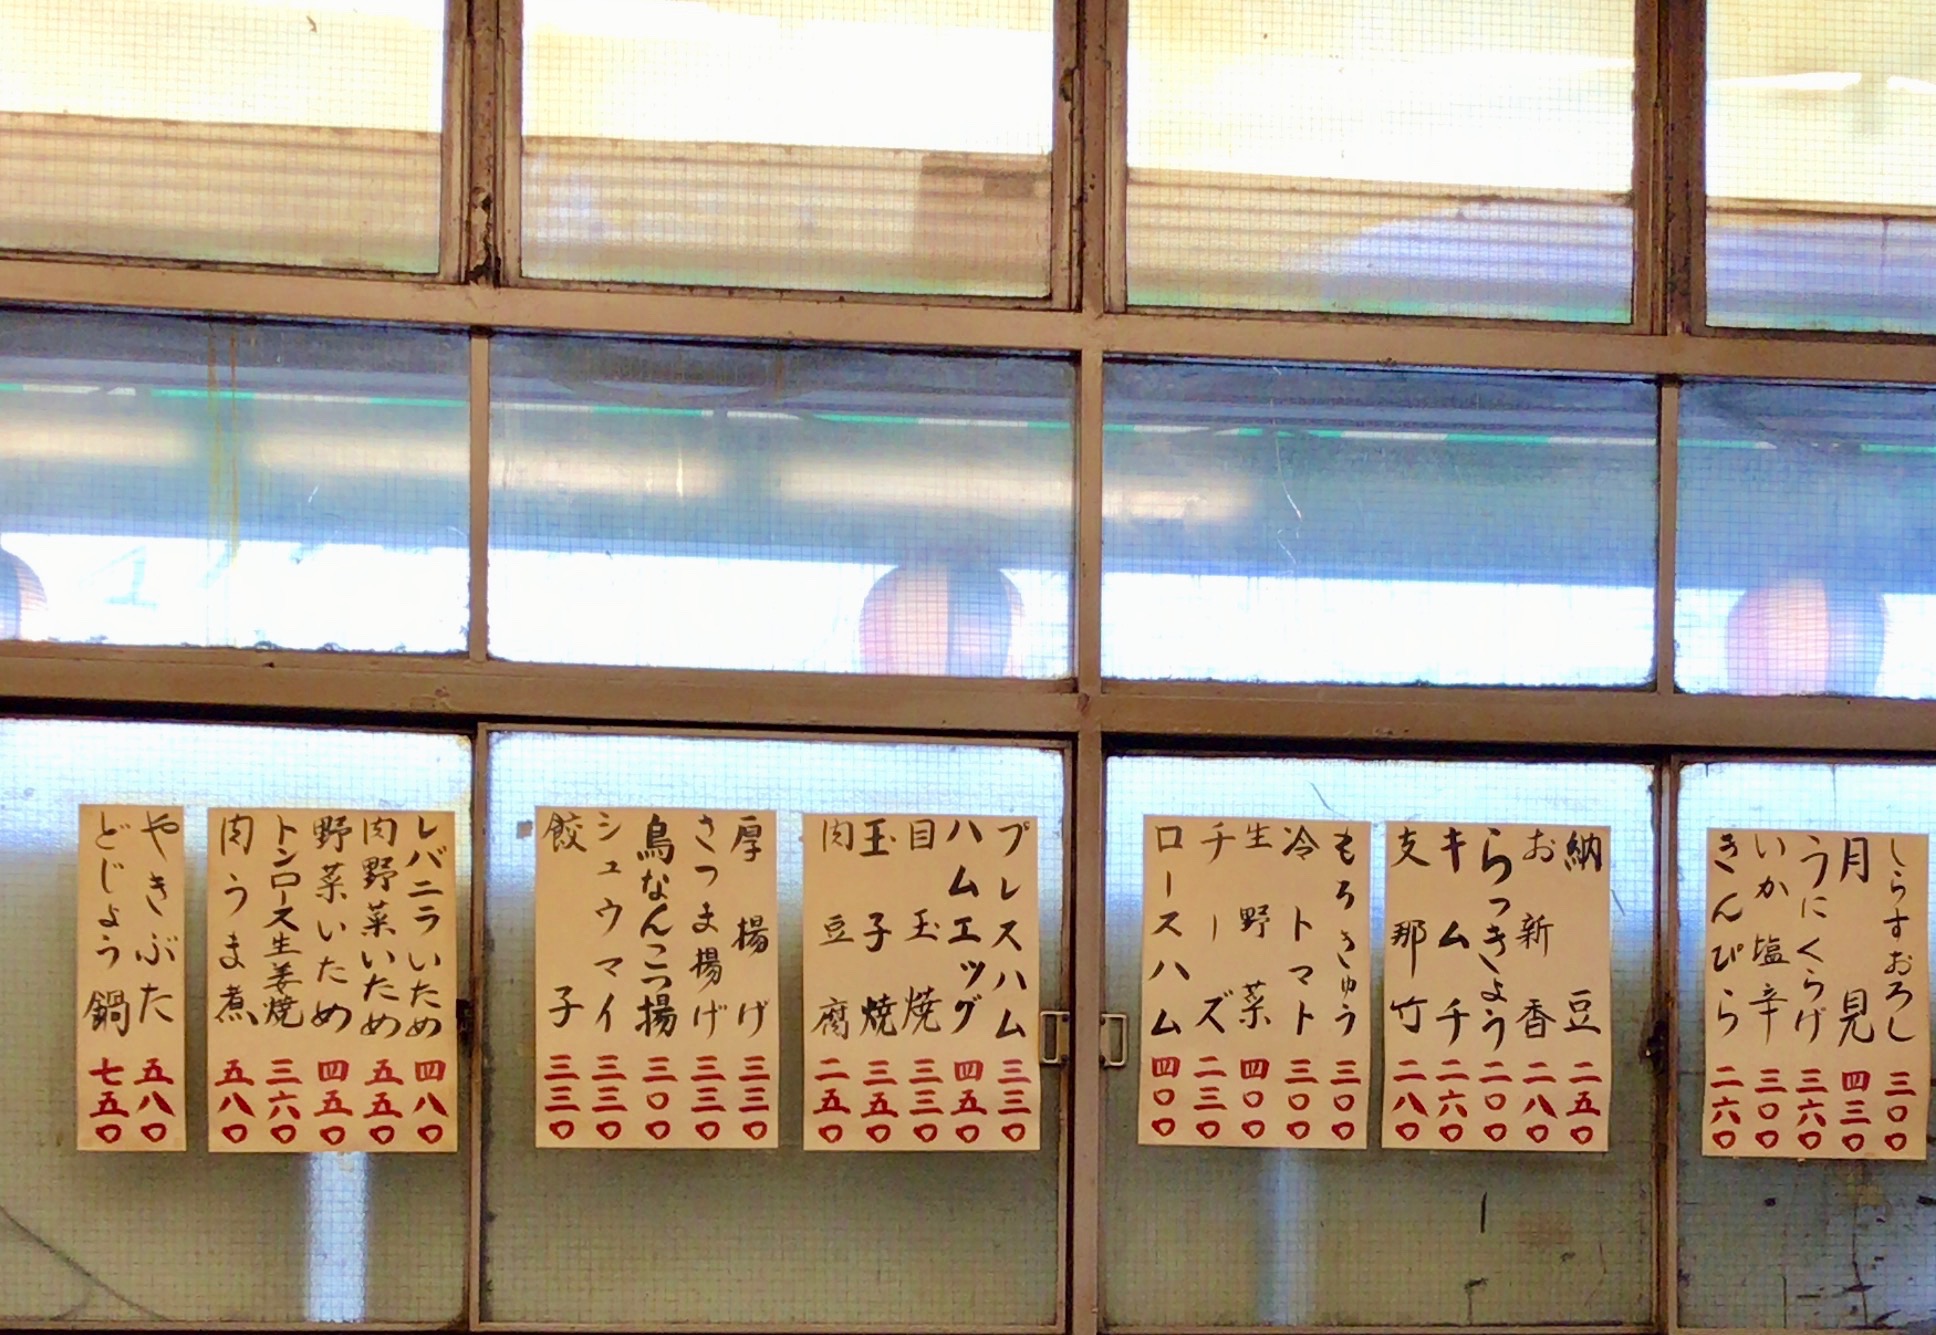 しらすおろし 三〇〇
月見 四三〇
うにくらげ 三六〇
いか塩辛 三〇〇
きんぴら 二六〇
納豆 二五〇
お新香 二八〇
らっきょう 二〇〇
キムチ 二六〇
支那竹 二八〇
もろきゅう 三〇〇
冷トマト 三〇〇
生野菜 四〇〇
チーズ 二三〇
ロースハム 四〇〇
プレスハム 三三〇
ハムエッグ 四五〇
目玉焼 三三〇
玉子焼 三五〇
肉豆腐 二五〇
厚揚げ 三三〇
さつま揚げ 三三〇
鳥なんこつ揚 三〇〇
シュウマイ 三三〇
餃子 三三〇
レバニラいため 四八〇
肉野菜いため 五五〇
野菜いため 四五〇
トンロース生姜焼 三六〇
肉うま煮 五八〇
やきぶた 五八〇
どじょう鍋 七五〇